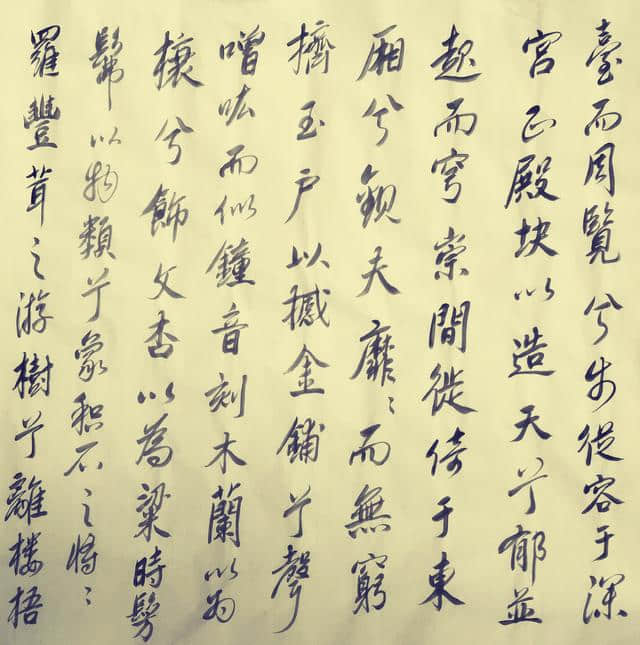 臺而周覽兮步從容于深
宮正殿块以造天兮郁並
起而穹崇間徙倚于東
厢兮觀夫靡〻而無窮
擠玉戶以撼金鋪兮聲
噌吰而似鐘音刻木蘭以為
榱兮飾文杏以為梁時髣
髴以物類兮象积石之将〻
羅豐茸之游樹兮離楼梧